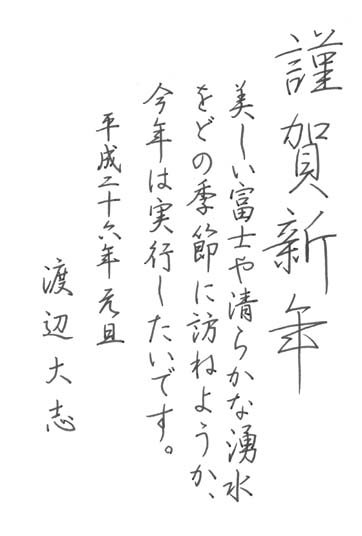 謹賀新年
美しい富士や清らかな湧水
をどの季節に訪ねようか、
今年は実行したいです。
平成二十六年元旦
渡辺大志